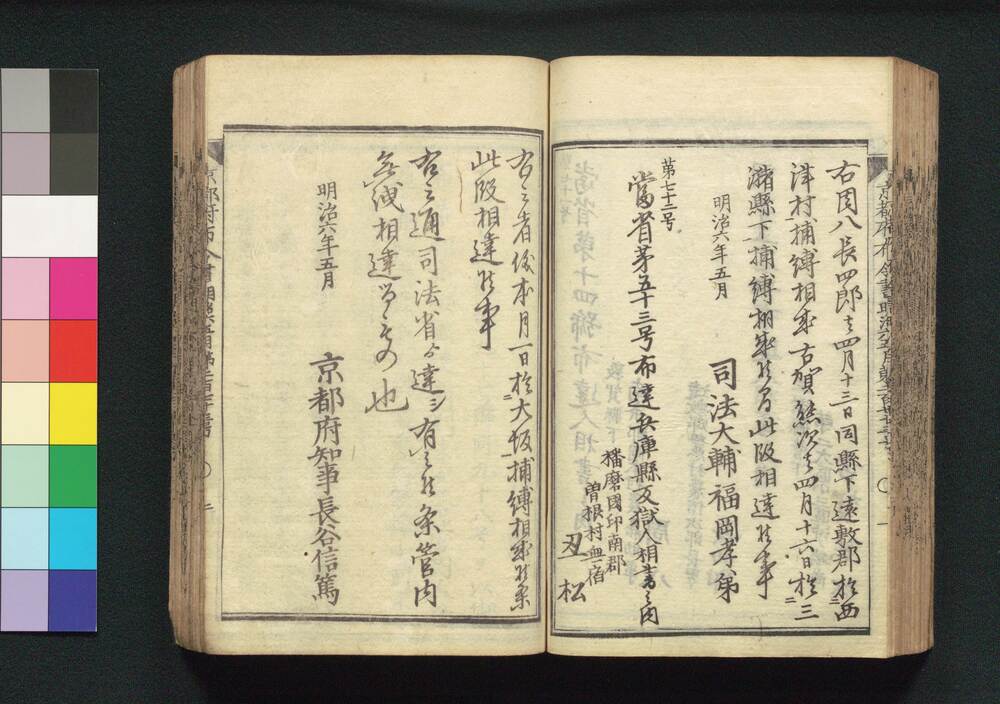 右岡八長四郎去四月十三日同縣下遠敷郡於西
津村捕縛相成古賀熊次去四月十六日於三
潴縣下捕縛相成候間此段相達候事
明治六年五月
司法大輔福岡孝弟
第七十二号
當省第五十三号布達兵庫縣反獄人相書之内
播磨國印南郡
曽根村無宿
丑松
右之者後本月一日於大坂捕縛相成候条
此段相達候事
右之通司法省ゟ達シ有之候条管内
無洩相達するもの也
明治六年五月
京都府知事長谷信篤